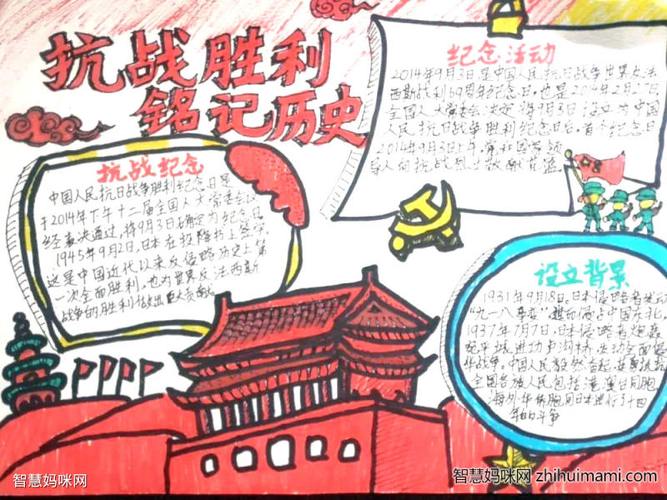 抗战胜利
铭记历史
纪念活动
2014年9月3日是中国人民抗日战争暨世界反法
西斯战利69周年纪念日,也是2014年2月27日
全国人大常委会决定将9月3日设立为中国
人民抗日战争胜利纪念日后,首个纪念日
2014年9月3日上午,党和国家领
导人向抗战烈士敬献花篮
抗战纪念
中国人民抗日战争胜利纪念日是
于2014年下午十二届全国人大常委会
经表决通过,将9月3日确定为纪念日
1945年9月2日,日本在投降书上签字
这是中国近代以来反侵略历史上第
一次全面胜利,也为世界反法西斯
战争的胜利做出巨大贡献
设立背景
1931年9月18日,日本侵略者发动
"九一八事变",
1937年7月7日,日本侵略者炮轰
宛平城进攻卢沟桥,发动全面侵
华战争。中国人民毅然奋起,
全国各族人民包括港澳台同胞
海外华侨同胞同日本进行了十四
年的斗争
智慧妈咪网
智慧妈咪网 zhihuimami.com